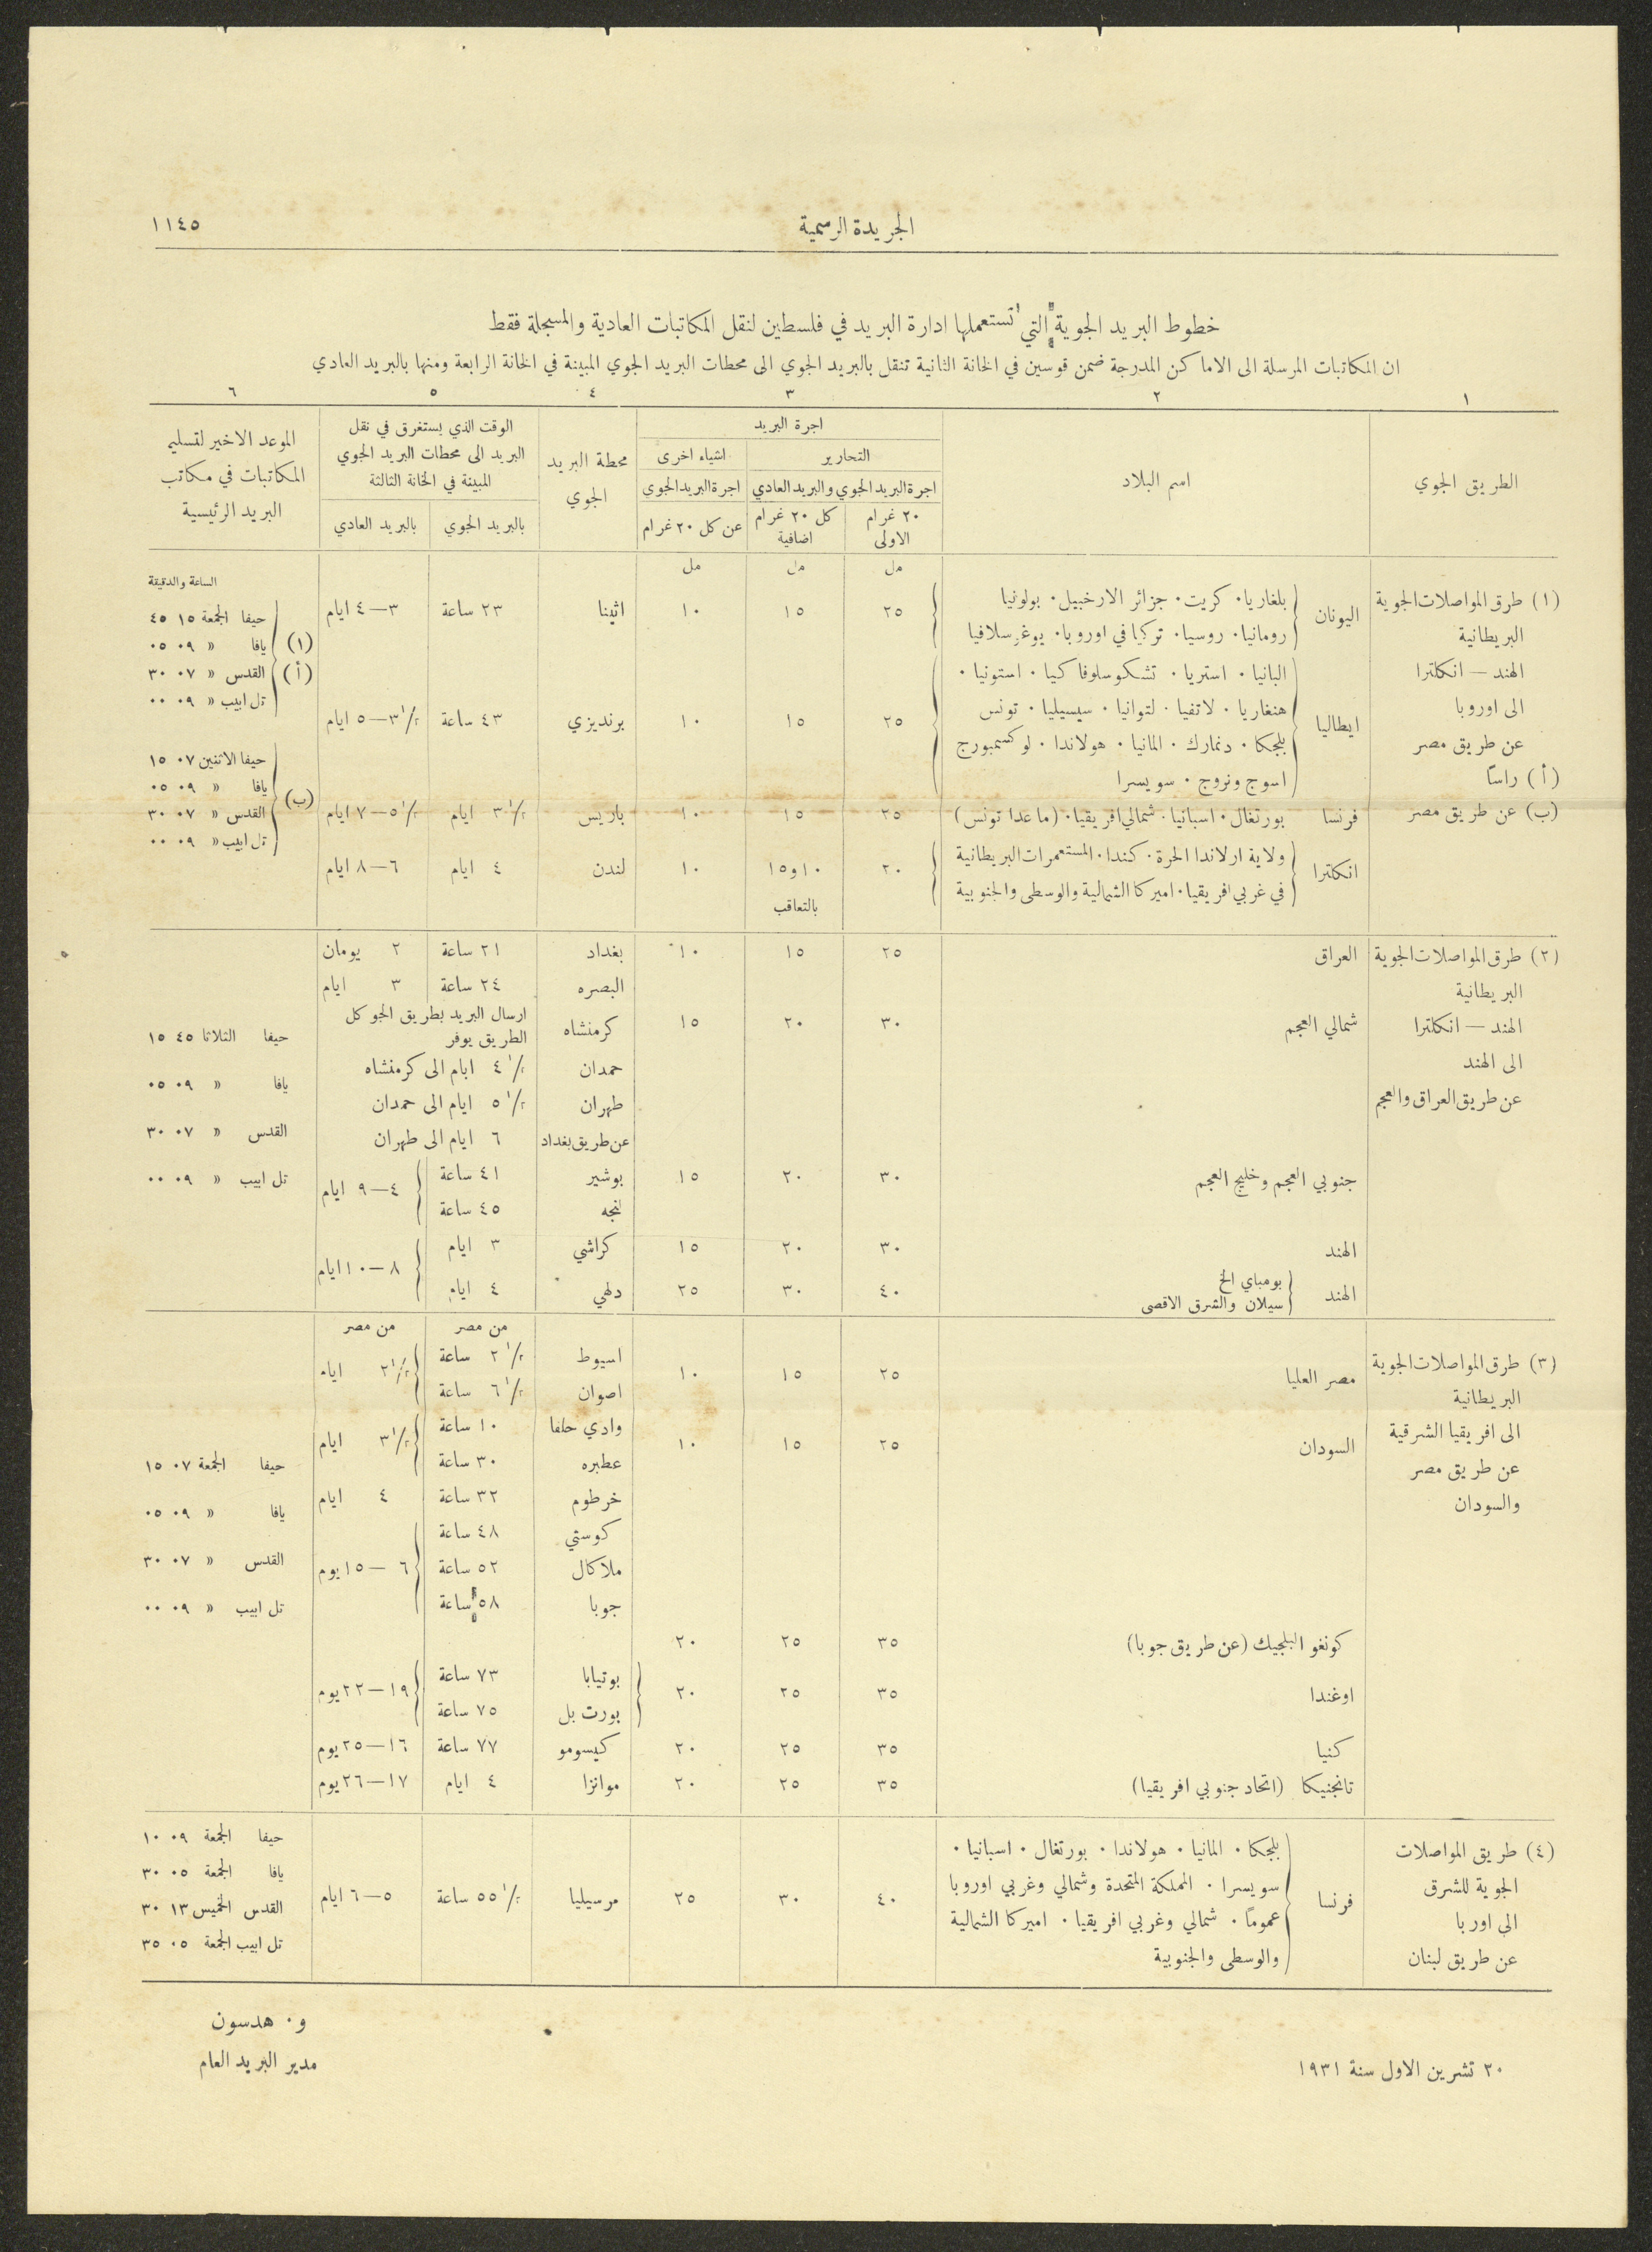 ١١٤٥
الجريدة الرسمية
خطوط البريد الجوية التي تستعملها ادارة البريد في فلسطين لنقل المكاتبات العادية والمسجلة فقط
ان المكاتبات المرسلة الى الاماكن المدرجة ضمن قوسين في الخانة الثانية تنقل بالبريد الجوي الى محطات البريد الجوي المبينة في الخانة الرابعة ومنها بالبريد العادي
١ ٢ ٣ ٤ ٥ ٦
الطريق الجوي
اسم البلاد
اجرة البريد
التحارير
اشياء اخرى
اجرة البريد الجوي والبريد العادي
اجرة البريد الجوي
٢٠ غرام الاولى
كل ٢٠ غرام اضافية
عن كل ٢٠ غرام
محطة البريد الجوي
الوقت الذي يستغرق في نقل
البريد الى محطات البريد الجوي
المبينة في الخانة الثالثة
بالبريد الجوي
بالبريد العادي
الموعد الاخير لتسليم
المكاتبات في مكاتب
البريد الرئيسية
مل مل مل
الساعة والدقيقة
(١) طرق المواصلات الجوية
البريطانية
الهند — انكلترا
الى اوروبا
عن طريق مصر
(أ) راسًا
(ب) عن طريق مصر
اليونان
بلغاريا. كريت. جزائر الارخبيل. بولونيا
رومانيا. روسيا. تركيا في اوروبا. يوغرسلافيا
٢٥ ١٥ ١٠ اثينا ٢٣ ساعة ٣—٤ ايام
ايطاليا
البانيا . استريا . تشكوسلوفاكيا . استونيا .
هنغاريا . لاتفيا . لتوانيا . سيسيليا . تونس
بلجكا . دنمارك . المانيا . هولاندا . لوكسمبورج
اسوج ونروج . سويسرا
٢٥ ١٥ ١٠ برنديزي ٤٣ ساعة ٣½—٥ ايام
فرنسا بورتغال. اسبانيا. شمالي افريقيا. (ما عدا تونس) ٢٥ ١٥ ١٠ باريس ٣½ ايام ٥½—٧ ايام
انكلترا
ولاية ارلاندا الحرة. كندا. المستعمرات البريطانية
في غربي افريقيا. اميركا الشمالية والوسطى والجنوبية
٢٠ ١٠ و١٥ بالتعاقب ١٠ لندن ٤ ايام ٦—٨ ايام
(١) (أ)
حيفا الجمعة ١٥ ٤٥
يافا » ٠٩ ٠٥
القدس » ٠٧ ٣٠
تل ابيب » ٠٩ ٠٠
(ب)
حيفا الاثنين ٠٧ ١٥
يافا » ٠٩ ٠٥
القدس » ٠٧ ٣٠
تل ابيب » ٠٩ ٠٠
(٢) طرق المواصلات الجوية
البريطانية
الهند — انكلترا
الى الهند
عن طريق العراق والعجم
العراق ٢٥ ١٥ ١٠ بغداد ٢١ ساعة ٢ يومان
البصره ٢٤ ساعة ٣ ايام
شمالي العجم ٣٠ ٢٠ ١٥ كرمنشاه
ارسال البريد بطريق الجو كل
الطريق يوفر
حمدان ٤½ ايام الى كرمنشاه
طهران ٥½ ايام الى حمدان
عن طريق بغداد ٦ ايام الى طهران
جنوبي العجم وخليج العجم ٣٠ ٢٠ ١٥ بوشير ٤١ ساعة ٤—٩ ايام
لنجه ٤٥ ساعة
الهند ٣٠ ٢٠ ١٥ كراشي ٣ ايام ٨—١٠ ايام
الهند
بومباي الخ
سيلان والشرق الاقصى
٤٠ ٣٠ ٢٥ دلهي ٤ ايام
حيفا الثلاثا ٤٥ ١٥
يافا » ٠٩ ٠٥
القدس » ٠٧ ٣٠
تل ابيب » ٠٩ ٠٠
(٣) طرق المواصلات الجوية
البريطانية
الى افريقيا الشرقية
عن طريق مصر
والسودان
من مصر من مصر
مصر العليا ٢٥ ١٥ ١٠ اسيوط ٢½ ساعة ٢½ ايام
اصوان ٦½ ساعة
السودان ٢٥ ١٥ ١٠ وادي حلفا ١٠ ساعة ٣½ ايام
عطبره ٣٠ ساعة
خرطوم ٣٢ ساعة ٤ ايام
كوستي ٤٨ ساعة
ملاكال ٥٢ ساعة ٦—١٥ يوم
جوبا ٥٨ ساعة
كونغو البلجيك (عن طريق جوبا) ٣٥ ٢٥ ٢٠
اوغندا ٣٥ ٢٥ ٢٠ بوتيابا ٧٣ ساعة ١٩—٢٢ يوم
بورت بل ٧٥ ساعة
كنيا ٣٥ ٢٥ ٢٠ كيسومو ٧٧ ساعة ١٦—٢٥ يوم
تانجنيكا (اتحاد جنوبي افريقيا) ٣٥ ٢٥ ٢٠ موانزا ٤ ايام ١٧—٢٦ يوم
حيفا الجمعة ٠٧ ١٥
يافا » ٠٩ ٠٥
القدس » ٠٧ ٣٠
تل ابيب » ٠٩ ٠٠
(٤) طريق المواصلات
الجوية للشرق
الى اوربا
عن طريق لبنان
فرنسا
بلجكا . المانيا . هولاندا . بورتغال . اسبانيا .
سويسرا . المملكة المتحدة وشمالي وغربي اوروبا
عمومًا . شمالي وغربي افريقيا . اميركا الشمالية
والوسطى والجنوبية
٤٠ ٣٠ ٢٥ مرسيليا ٥٥½ ساعة ٥—٦ ايام
حيفا الجمعة ٠٩ ١٠
يافا الجمعة ٠٥ ٣٠
القدس الخميس ١٣ ٣٠
تل ابيب الجمعة ٠٥ ٣٥
و. هدسون
مدير البريد العام
٢٠ تشرين الاول سنة ١٩٣١